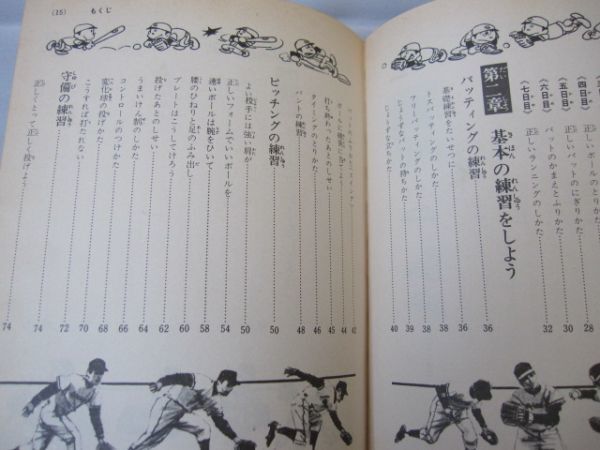 《四日目》
正しいバットのにぎりかた 28
《五日目》
バットのかまえとふりかた 30
《六日目》
正しいランニングのしかた 32
《七日目》
第二章 基本の練習をしよう 36
バッティングの練習 36
基礎練習をたいせつに 38
トスバッティングのしかた 38
フリーバッティングのしかた 39
じょうずなバットの持ちかた 40
(15) もくじ
42
ボールに確実に 44
打ち終わったあとのしせい 45
タイミングのとりかた 46
バントの練習 48
ピッチングの練習 50
よい投手には強い肩が 50
正しいフォームでいいボールを 54
速いボールは腕をひいて 58
腰のひねりと足のふみ出し 60
プレートはこうしてけろう 62
投げたあとのしせい 64
うまいけん制のしかた 66
コントロールのつけかた 68
変化球の投げかた 70
こうすれば打たれない 72
守備の練習 74
正しくとって正しく投げよう 74